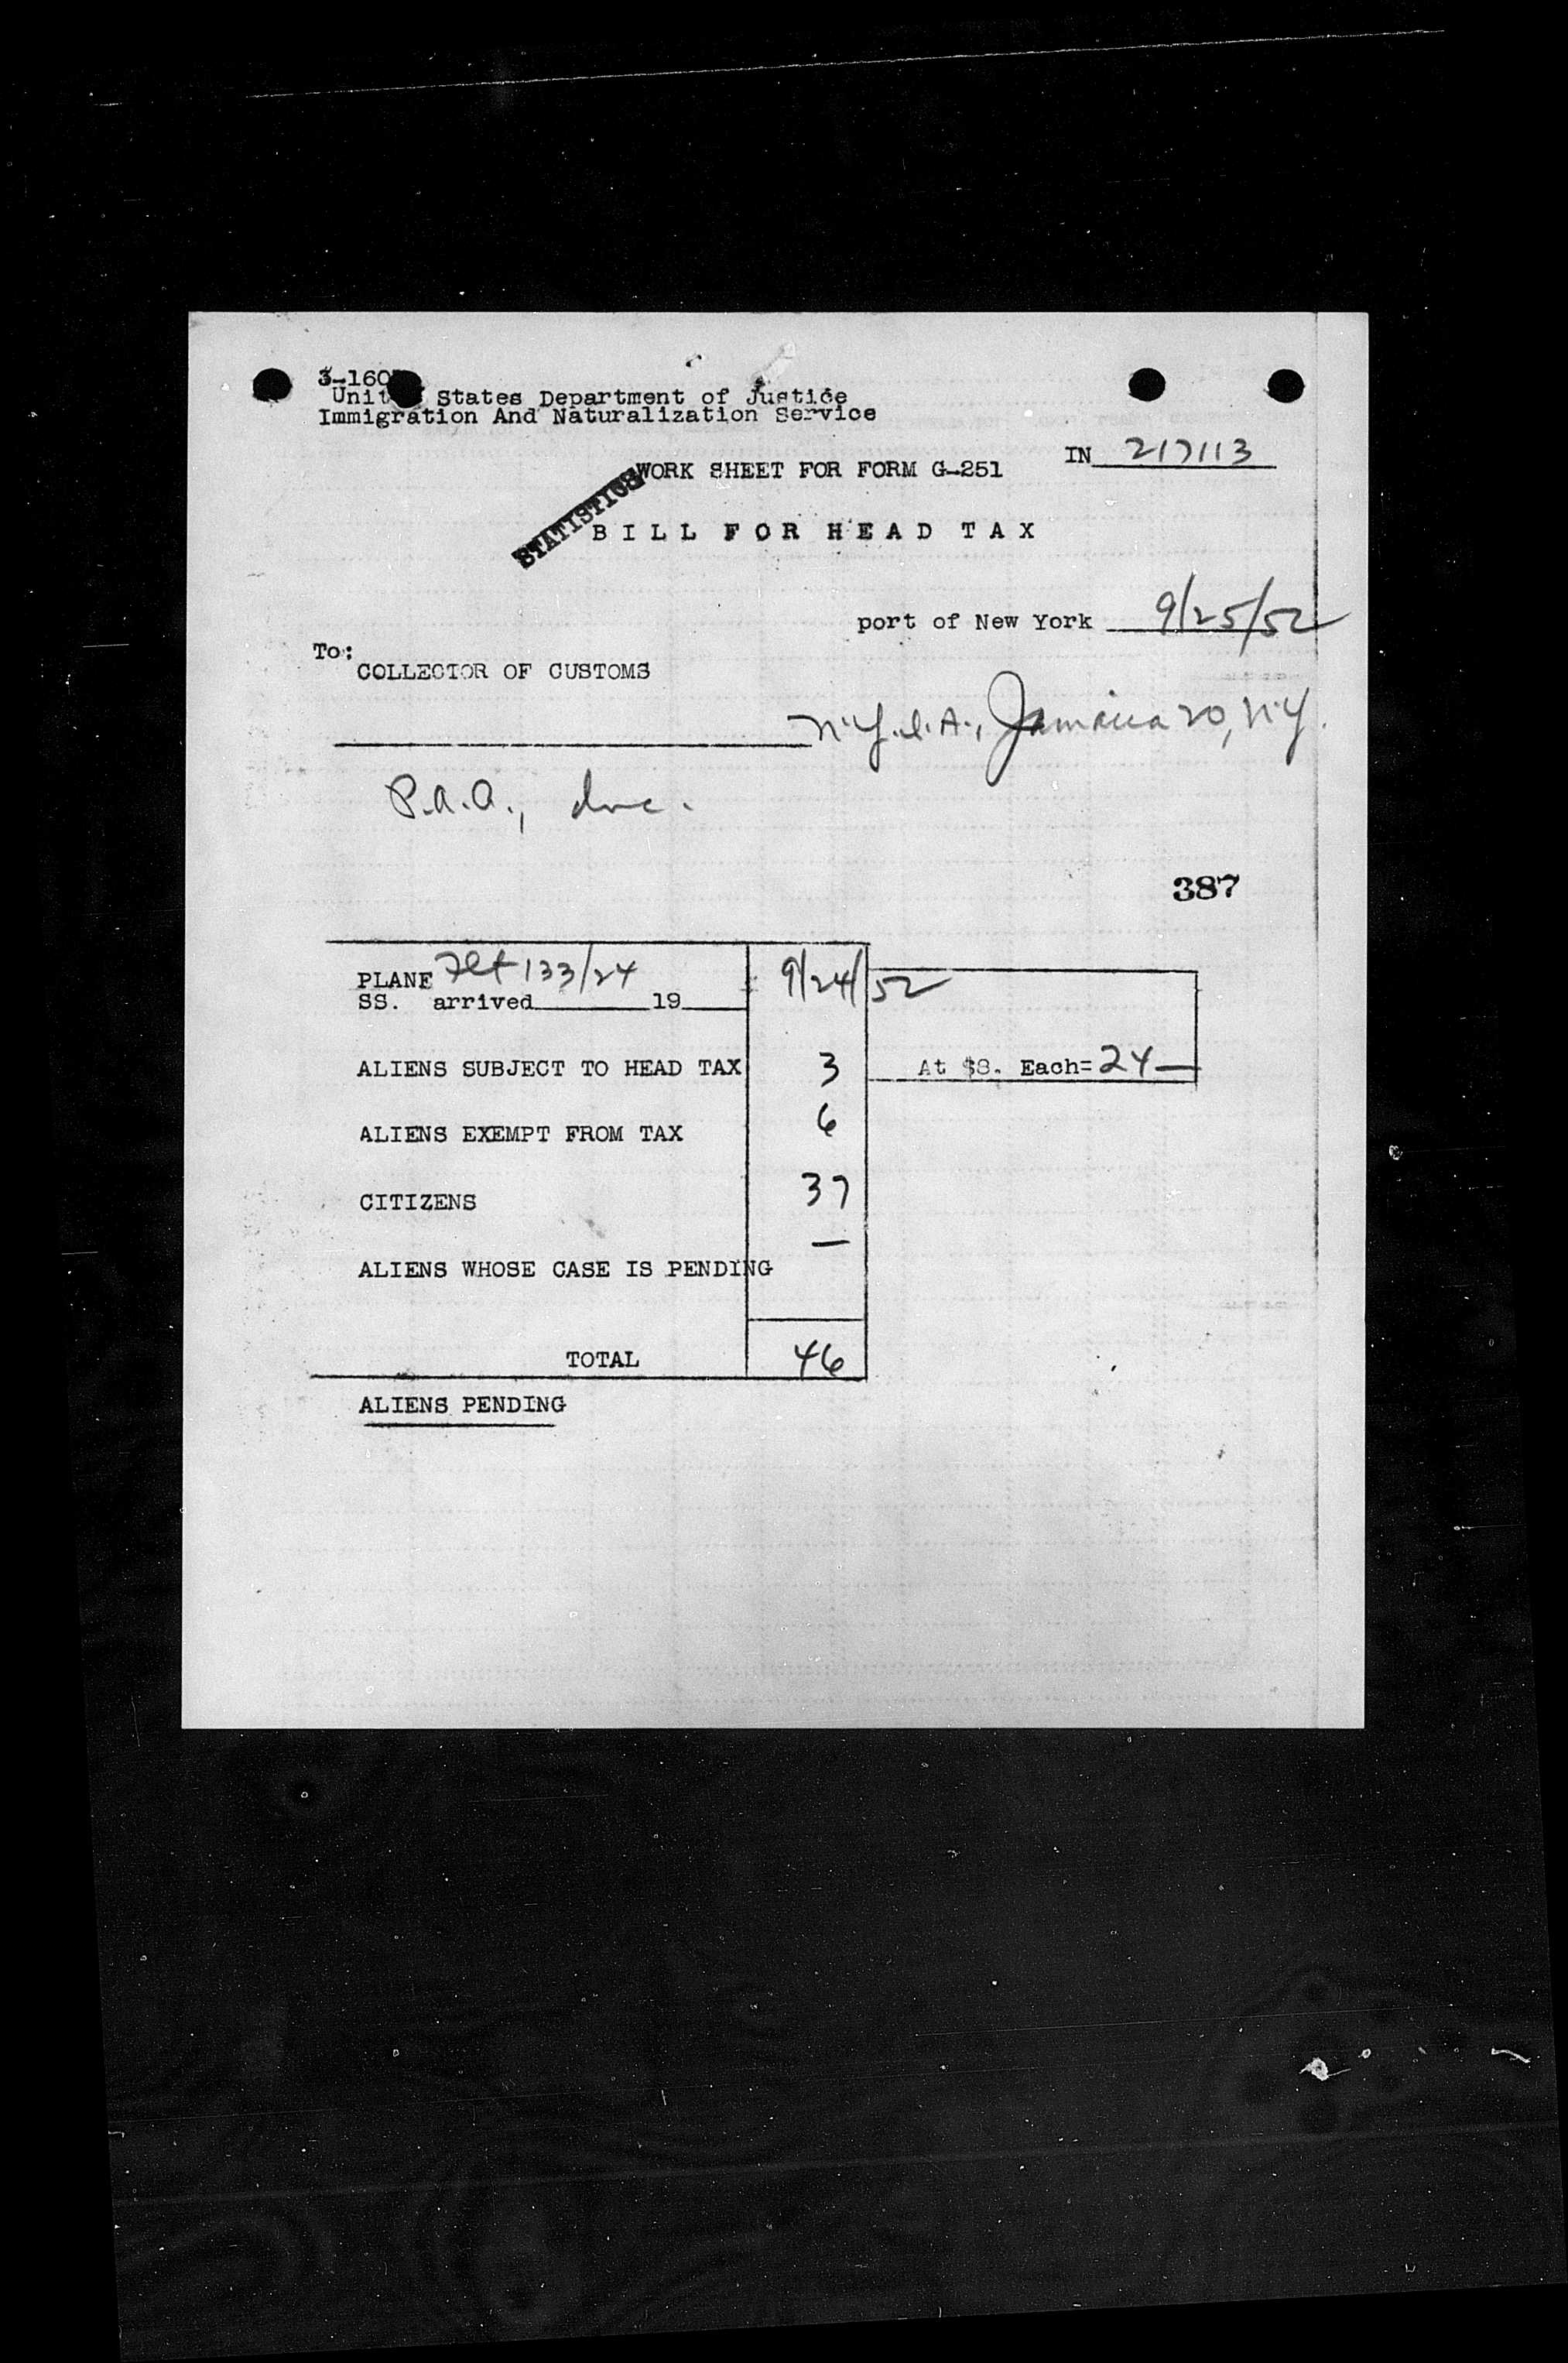 3-160
United States Department of Justice
Immigration And Naturalization Service
IN 217113
WORK SHEET FOR FORM G-251
STATISTICS
BILL FOR HEAD TAX
port of New York 9/25/52
To:
COLLECTOR OF CUSTOMS
N.Y.I.A., Jamaica 20, N.Y.
P.A.A., Inc.
387
PLANE Flt 133/24 9/24/52
SS. arrived 19
ALIENS SUBJECT TO HEAD TAX 3 At $8. Each= 24—
ALIENS EXEMPT FROM TAX 6
CITIZENS 37
ALIENS WHOSE CASE IS PENDING —
TOTAL 46
ALIENS PENDING